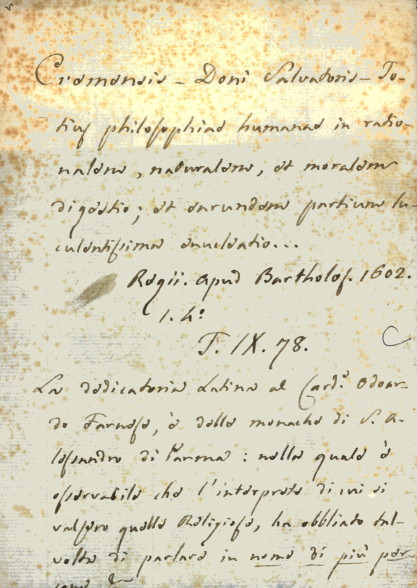 Cremonesis - Doni Salvatoris - To-
tius philosophiae humanae in ratio-
nalem, naturalem, et moralem
digestio; et earundem partium lu-
culentissima enucleatio...
Regii. Apud Bartholof. 1602.
1. 4.º
T. IX. 78.
La dedicatoria Latina al Card.e Odoar-
do Farnese, è delle monache di S. A-
lessandro di Parma: nella quale è
osservabile che l'interprete di cui si
valsero quelle Religiose, ha obbliato tal-
volta di parlare in nome di più per-
sone